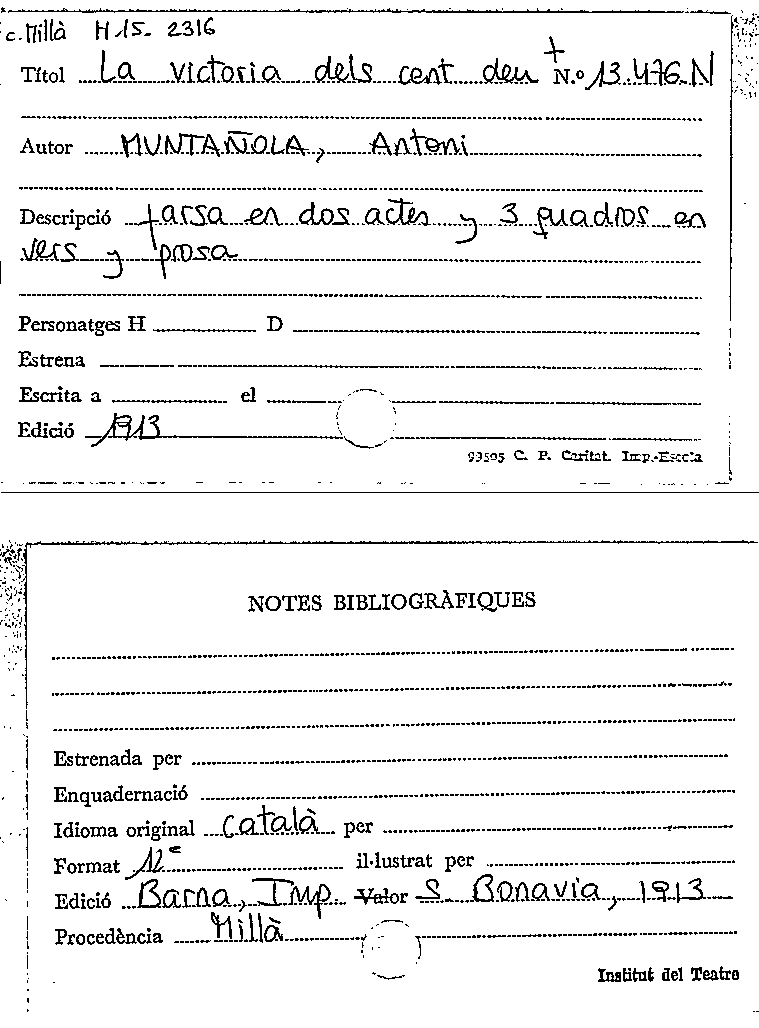 c. Millà H 15- 2316
+
Títol La victoria dels cent deu N.º 13.476-N
Autor MUNTAÑOLA, Antoni
Descripció farsa en dos actes y 3 quadros en
vers y prosa
Personatges H D
Estrena
Escrita a el
Edició 1913
99595 C. P. Caritat. Imp.-Escola
NOTES BIBLIOGRÀFIQUES
Estrenada per
Enquadernació
Idioma original català per
Format 12º il·lustrat per
Edició Barna, Imp. Valor S. Bonavia, 1913
Procedència Millà
Institut del Teatre